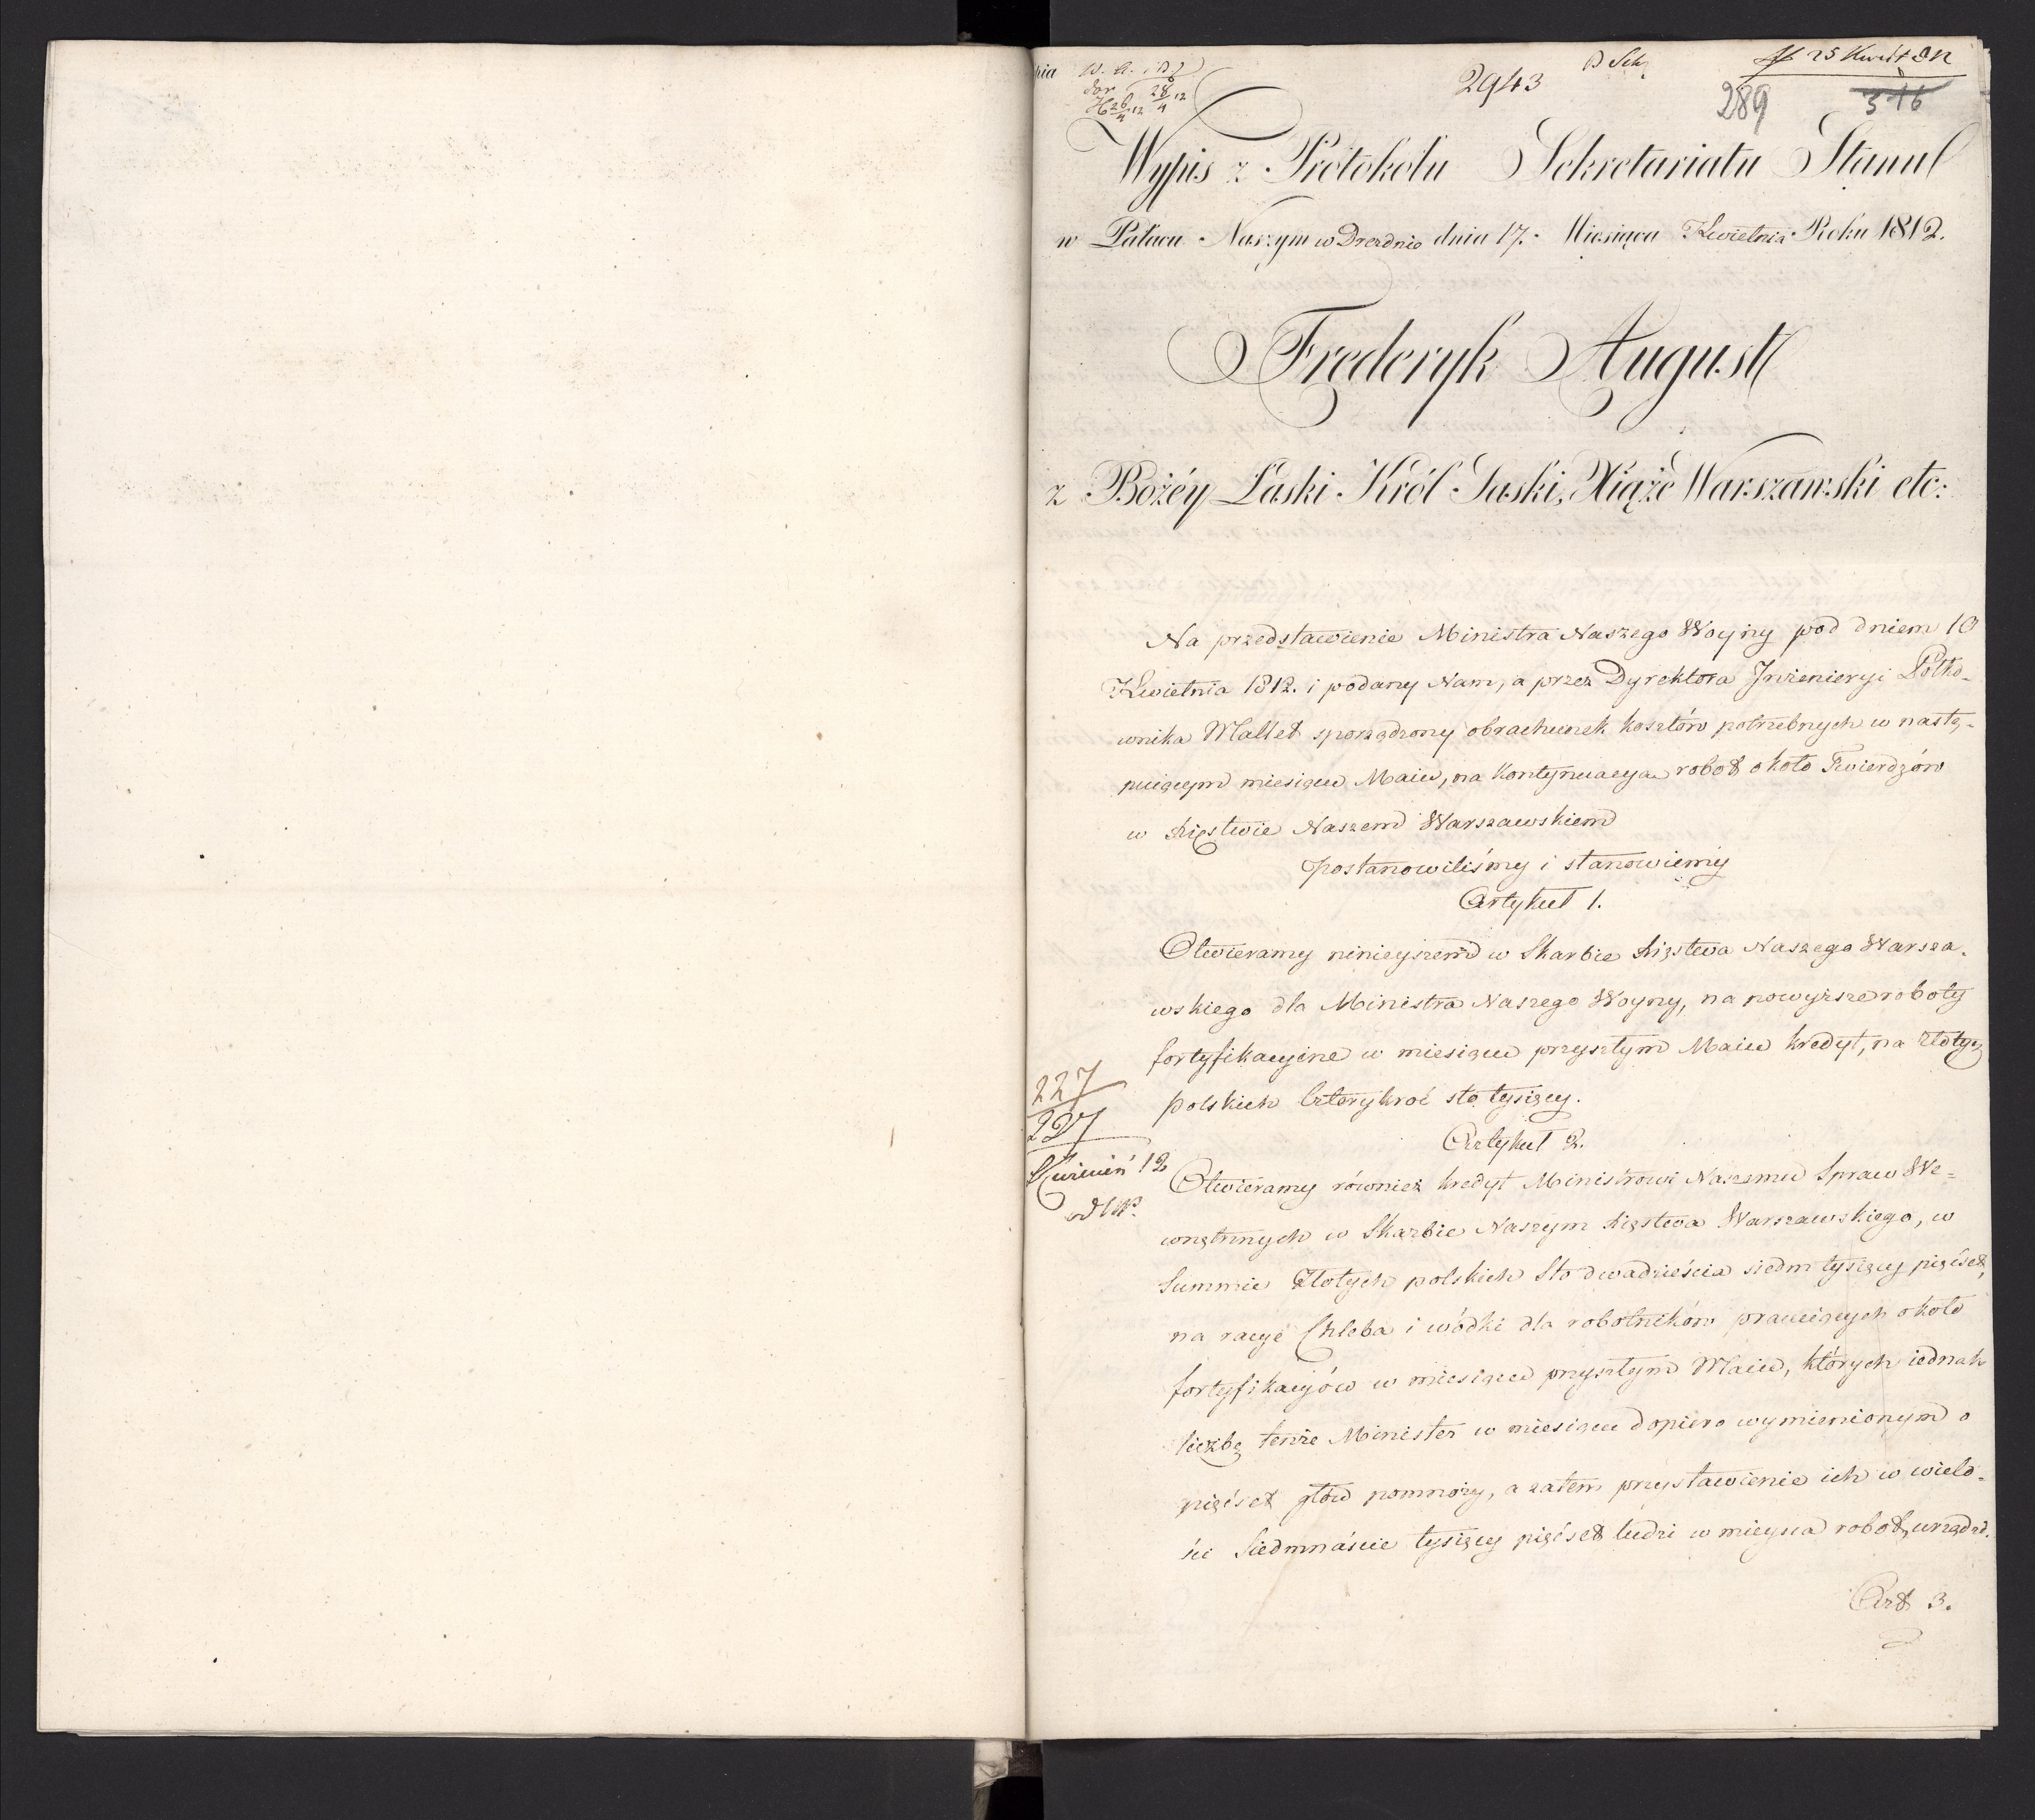 2943
289
316
Wypis z Protokołu Sekretariatu Stanu
w Pałacu Naszym w Dreznie dnia 17. Miesiąca Kwietnia Roku 1812.
Frederyk August
z Bożéy Łaski Król Saski, Xiąże Warszawski etc:
Na przedstawienie Ministra Naszego Woyny pod dniem 10
Kwietnia 1812. i podany Nam, a przez Dyrektora Jnżenieryi Półko-
wnika Mallet sporządzony obrachunek kosztów potrzebnych w nastę-
puiącym miesiącu Maiu, na kontynuacyą robot około Twierdzów
w Xięstwie Naszem Warszawskiem
postanowiliśmy i stanowiemy
Artykuł 1.
Otwieramy ninieyszem w Skarbie Xięstwa Naszego Warsza-
wskiego dla Ministra Naszego Woyny, na powyższe roboty
fortyfikacyine w miesiącu przyszłym Maiu kredyt, na Złotych
polskich Czterykroć sto tysięcy.
227
227
Kwiecień 12
Artykuł 2.
Otwieramy również kredyt Ministrowi Naszemu Spraw We-
wnętrznych w Skarbie Naszym Xięstwa Warszawskiego, w
Summie Złotych polskich Sto dwadzieścia siedm tysięcy pięćset,
na racye Chleba i wódki dla robotników pracuiących około
fortyfikacyów w miesiącu przyszłym Maiu, których iednak
liczbę tenże Minister w miesiącu dopiero wymienionym o
pięćset głów pomnoży, a zatem przystawienie ich w wielo-
ści Siedmnaście tysięcy pięćset ludzi w mieysca robot, urządzi.
Art 3.